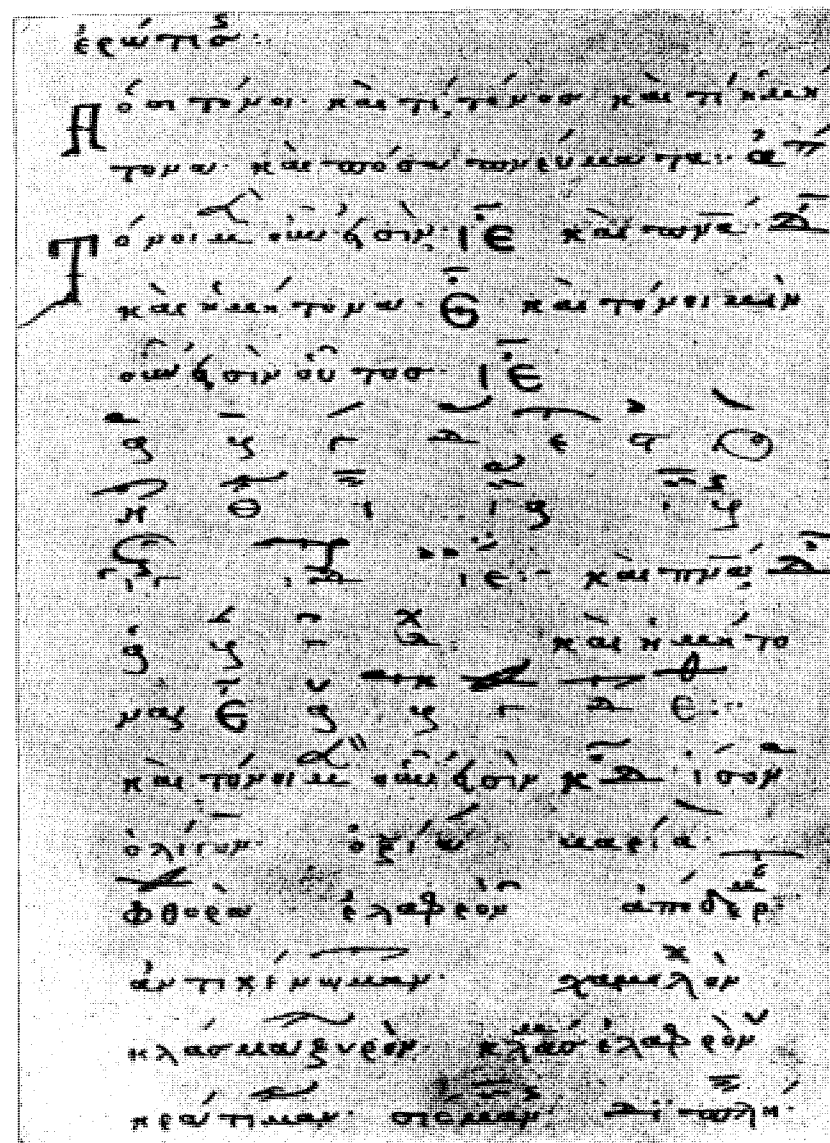 ἐρώτισ
Πόσοι τόνοι· καὶ τί τόνοσ καὶ τί ἡμή
τονα· καὶ πόσα πνεύματα:· ἀπ
Τόνοι μ οὖν εἰσὶν ΙΕ καὶ πνα Δ
καὶ ἡμήτονα· Ε καὶ τόνοι μὲν
οὖν εἰσὶν οὗτοσ· ΙΕ
α β γ δ ε ς ζ
η θ ι ια ιβ
ιγ ιδ ιε:- καὶ πνα Δ
α β γ δ. καὶ ἡμήτο
να Ε α β γ δ ε:·
καὶ τόνοι μ οὖν εἰσὶν ΚΔ ἴσον
ὀλίγον· ὀξία βαρία·
φθορὰ ἐλαφρὸν ἀπόδερ
ἀντικένωμαν· χαμηλὸν
κλάσμα ξυρὸν· κλάσ ἐλαφρὸν
κράτιμαν· διπλή·